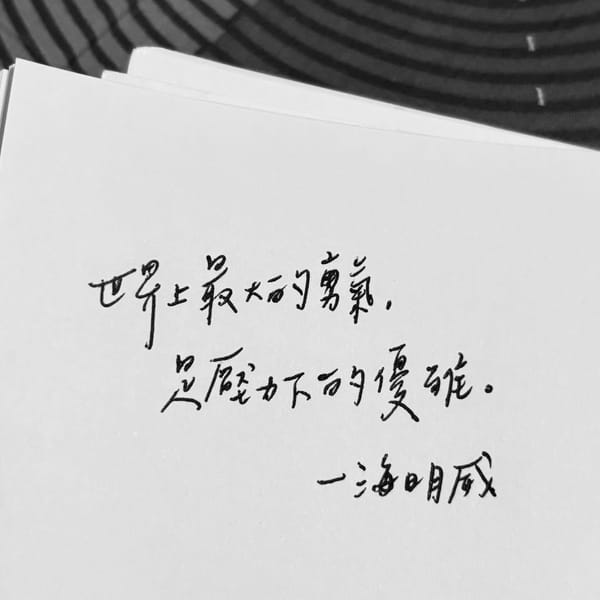 世界上最大的勇氣，
是壓力下的優雅。
—海明威